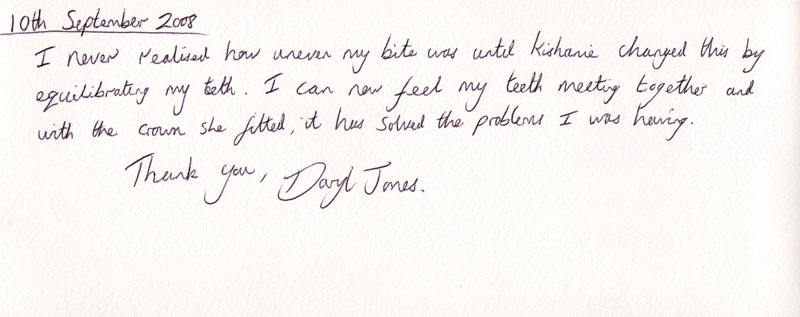 10th September 2008
I never realised how uneven my bite was until Kishanie changed this by
equilibrating my teeth. I can now feel my teeth meeting together and
with the crown she fitted, it has solved the problems I was having.
Thank you, Daryl Jones.